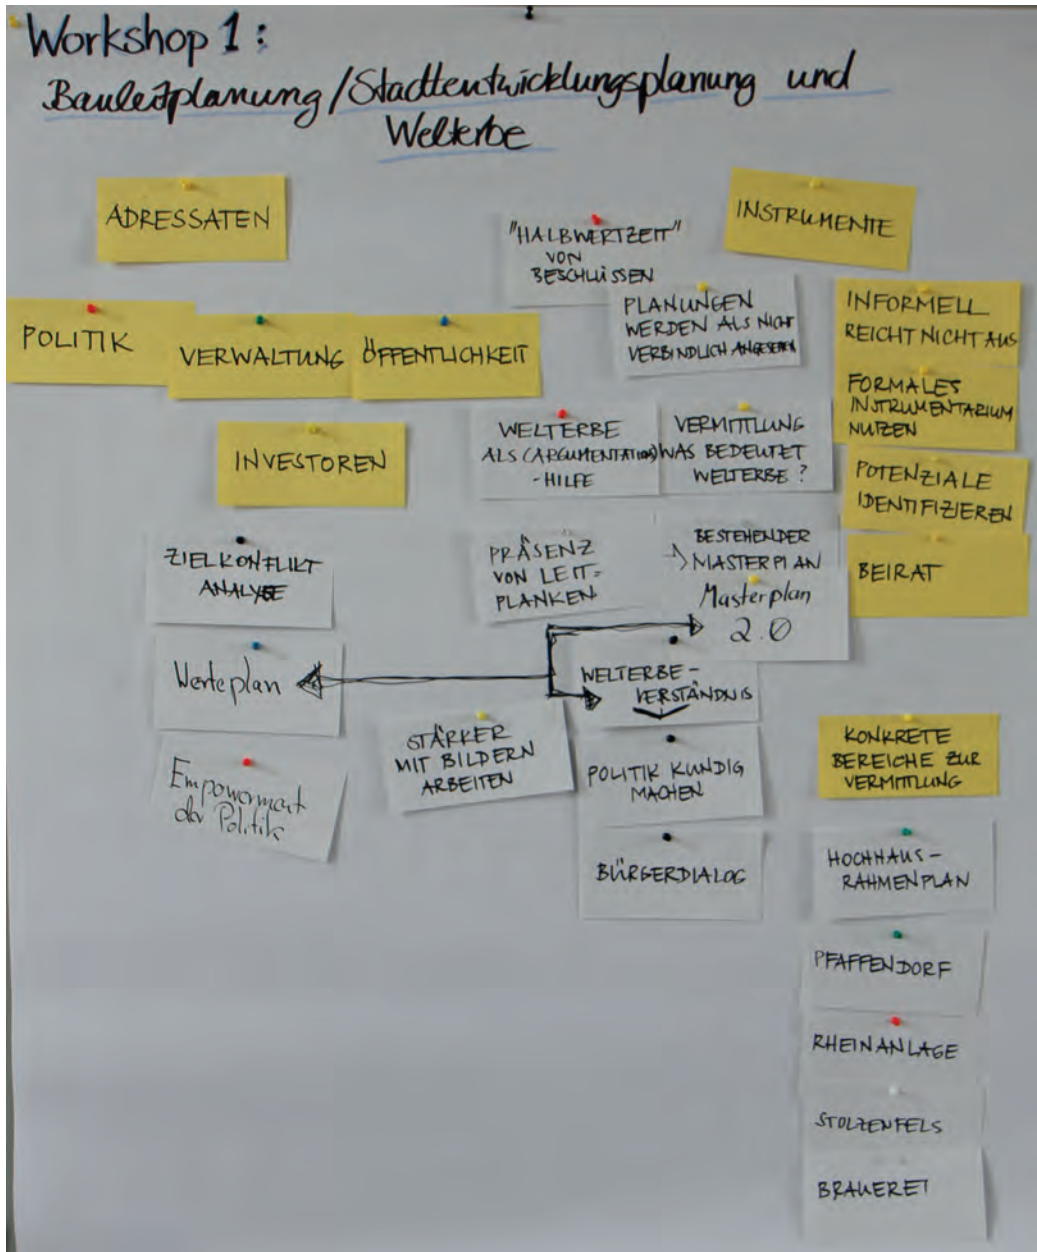 Workshop 1:
Bauleitplanung/Stadtentwicklungsplanung und
Welterbe
ADRESSATEN
POLITIK
VERWALTUNG
ÖFFENTLICHKEIT
INVESTOREN
ZIELKONFLIKT
ANALYSE
Werteplan
Empowerment
der Politik
"HALBWERTZEIT"
VON
BESCHLÜSSEN
PLANUNGEN
WERDEN ALS NICHT
VERBINDLICH ANGESEHEN
WELTERBE
ALS (ARGUMENTATIONS)
-HILFE
VERMITTLUNG
WAS BEDEUTET
WELTERBE?
PRÄSENZ
VON LEIT=
PLANKEN
BESTEHENDER
→ MASTERPLAN
Masterplan
2.0
WELTERBE-
VERSTÄNDNIS
STÄRKER
MIT BILDERN
ARBEITEN
POLITIK KUNDIG
MACHEN
BÜRGERDIALOG
INSTRUMENTE
INFORMELL
REICHT NICHT AUS
FORMALES
INSTRUMENTARIUM
NUTZEN
POTENZIALE
IDENTIFIZIEREN
BEIRAT
KONKRETE
BEREICHE ZUR
VERMITTLUNG
HOCHHAUS-
RAHMENPLAN
PFAFFENDORF
RHEINANLAGE
STOLZENFELS
BRAUEREI